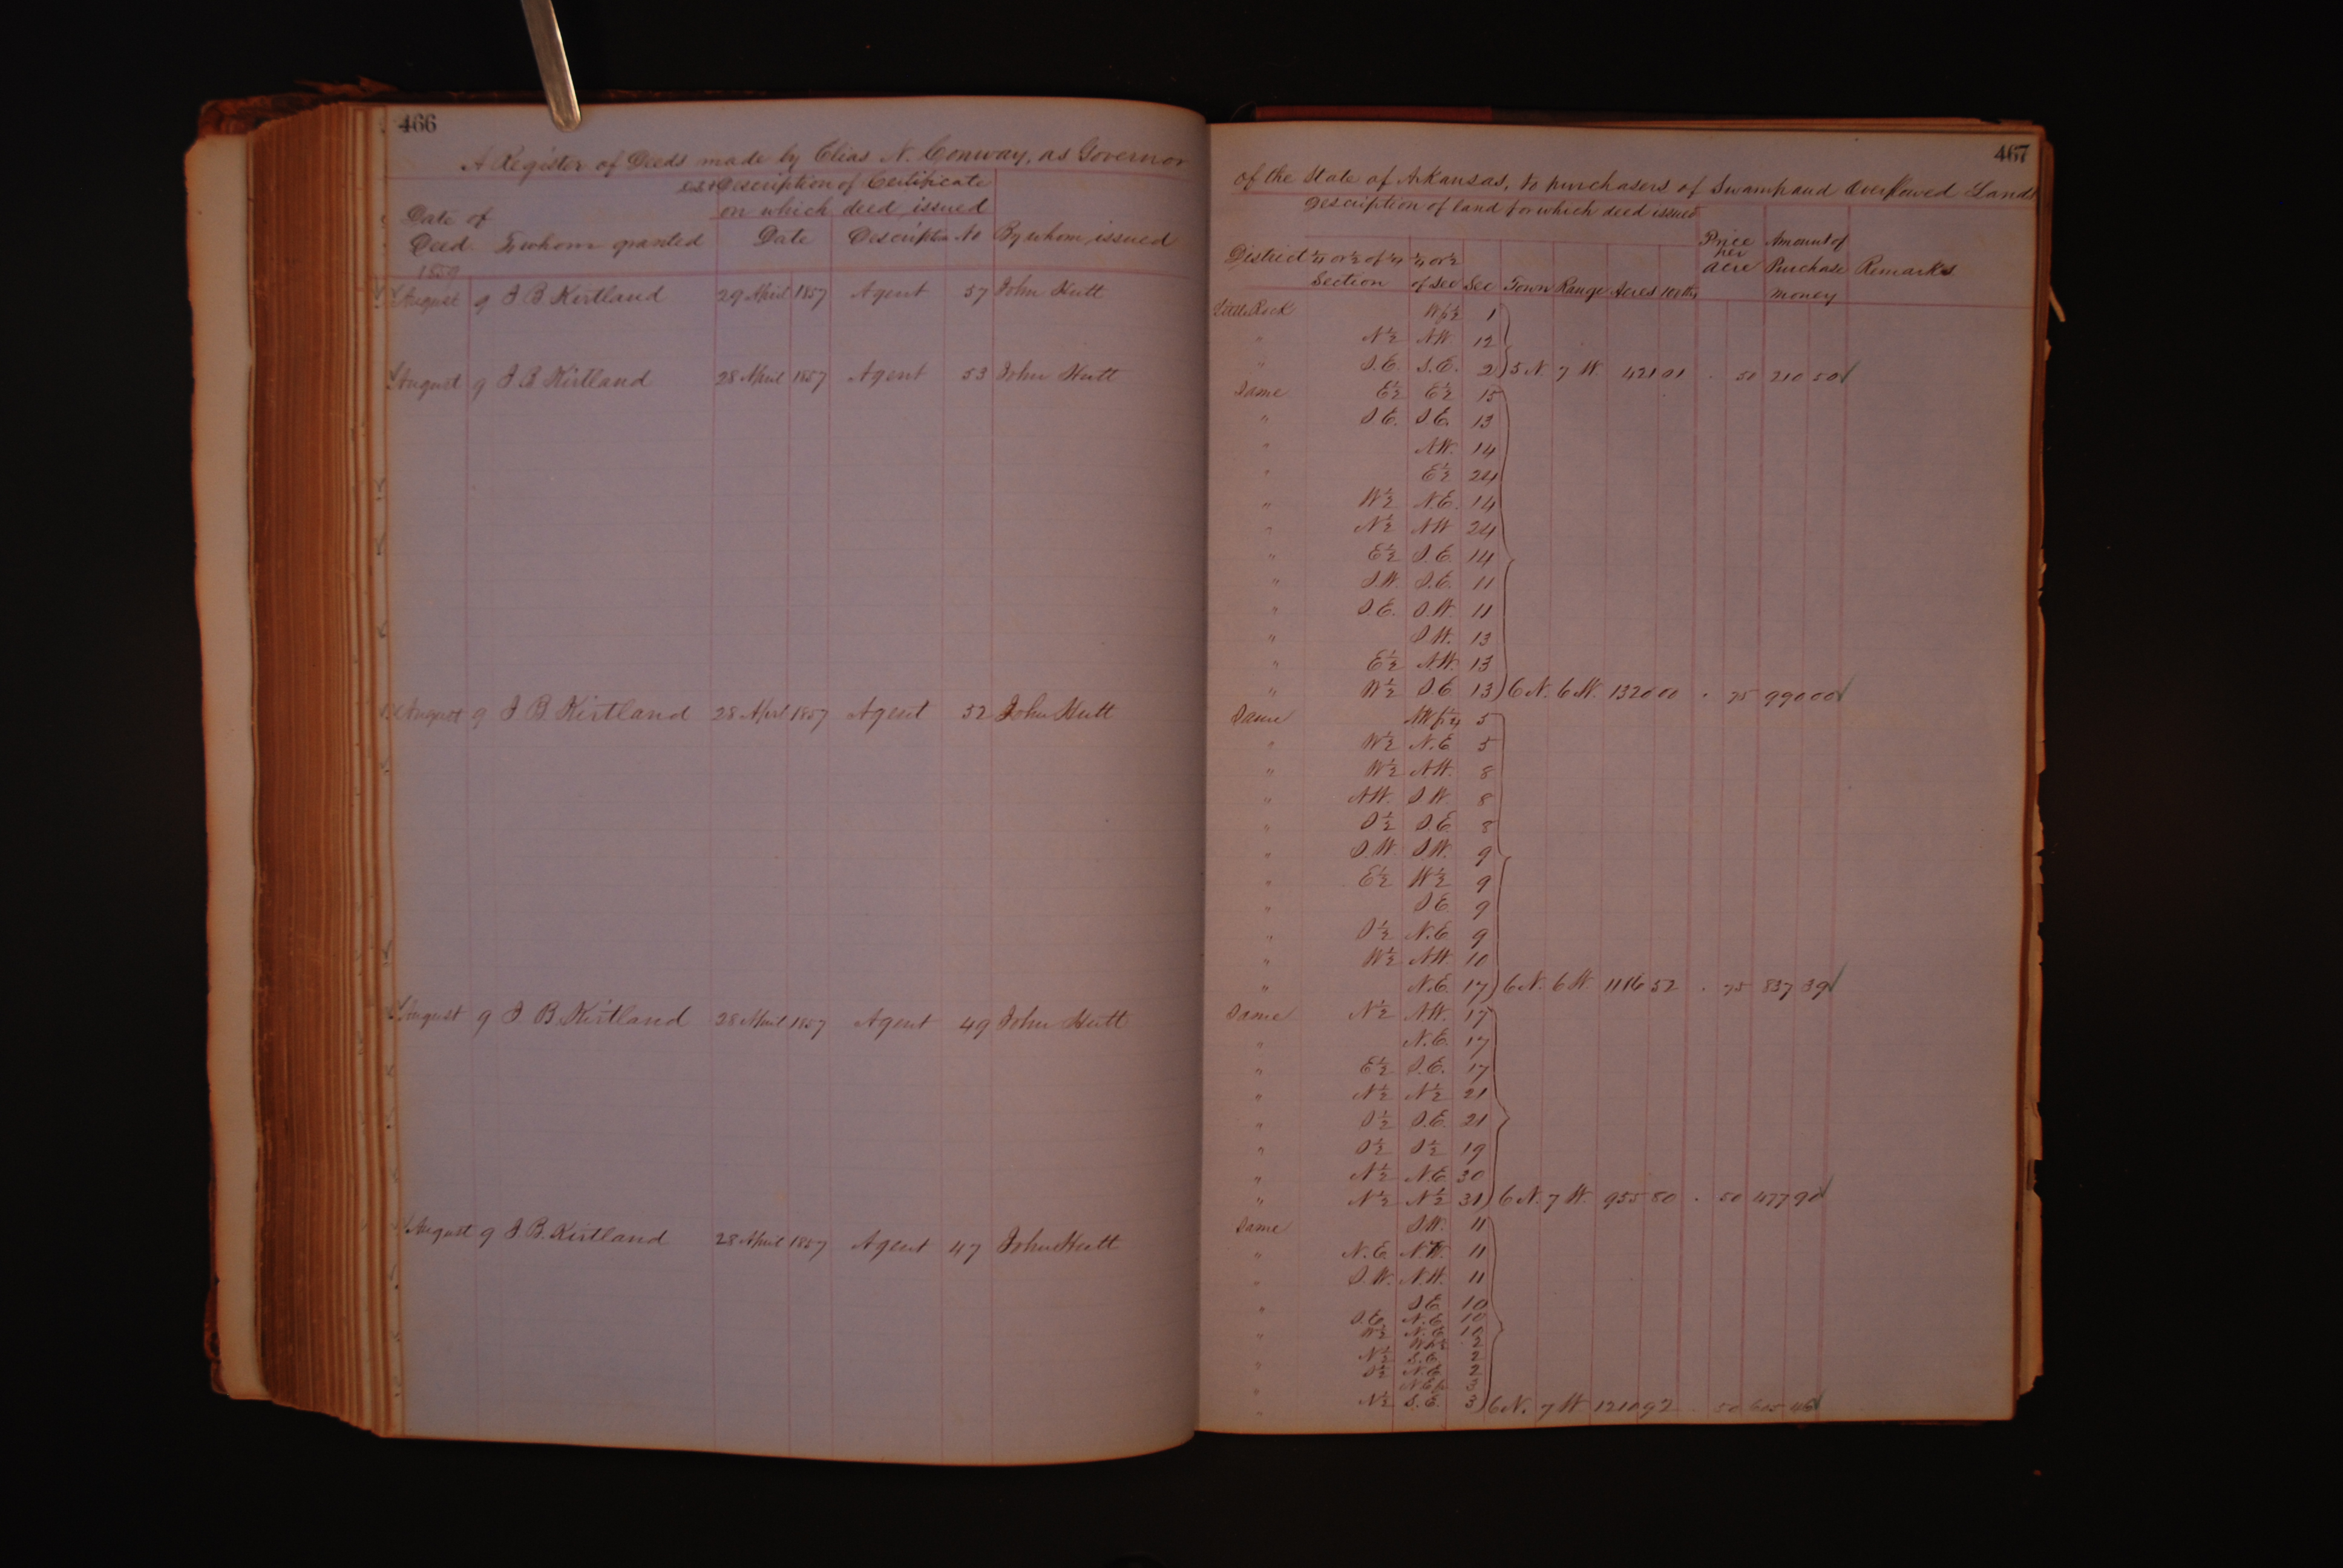 466
A Register of Deeds made by Elias N. Conway, as Governor
Description of Certificate
on which deed issued
Date of
Deed To whom granted Date Descriptn No By whom issued
1859
August 9 J B Kirtland 29 April 1857 Agent 57 John Hutt
August 9 J B Kirtland 28 April 1857 Agent 53 John Hutt
August 9 J B Kirtland 28 April 1857 Agent 52 John Hutt
August 9 J B Kirtland 28 April 1857 Agent 49 John Hutt
August 9 J. B. Kirtland 28 April 1857 Agent 47 John Hutt
467
of the State of Arkansas, to purchasers of Swamp and Overflowed Lands
Description of land for which deed issued
District ¼ or ½ of ¼ Section ¼ or ½ of Sec Sec Town Range Acres 100ths Price per acre Amount of Purchase money Remarks
Little Rock W fr ½ 1
" N ½ N.W. 12
" S.E. S.E. 2 5 N 7 W. 421 01 . 50 210 50
Same E ½ E ½ 15
" S.E. S.E. 13
" N.W. 14
" E ½ 24
" W ½ N.E. 14
" N ½ N.W 24
" E ½ S.E. 14
" S.W. S.E. 11
" S.E. S.W. 11
" S.W. 13
" E ½ N.W. 13
" W ½ S.E 13 6 N. 6 W. 1320 00 . 75 990 00
Same N.W fr ¼ 5
" W ½ N.E 5
" W ½ N.W. 8
" N.W. S.W. 8
" S ½ S.E. 8
" S.W S.W. 9
" E ½ W ½ 9
" S.E. 9
" S ½ N.E 9
" W ½ N.W. 10
" N.E. 17 6 N. 6 W 1116 52 . 75 837 39
Same N ½ N.W. 17
" N.E. 17
" E ½ S.E. 17
" N ½ N ½ 21
" S ½ S.E. 21
" S ½ S ½ 19
" N ½ N.E 30
" N ½ N ½ 31 6 N. 7 W. 955 80 . 50 477 90
Same S.W. 11
" N.E N.W. 11
" S.W. N.W. 11
" S.E 10
S.E. N.E 10
" W ½ N.E 10
W fr ½ 2
N ½ S.E. 2
" S ½ N.E 2
N.E fr 3
" N ½ S.E. 3 6 N. 7 W 1210 92 . 50 605 46